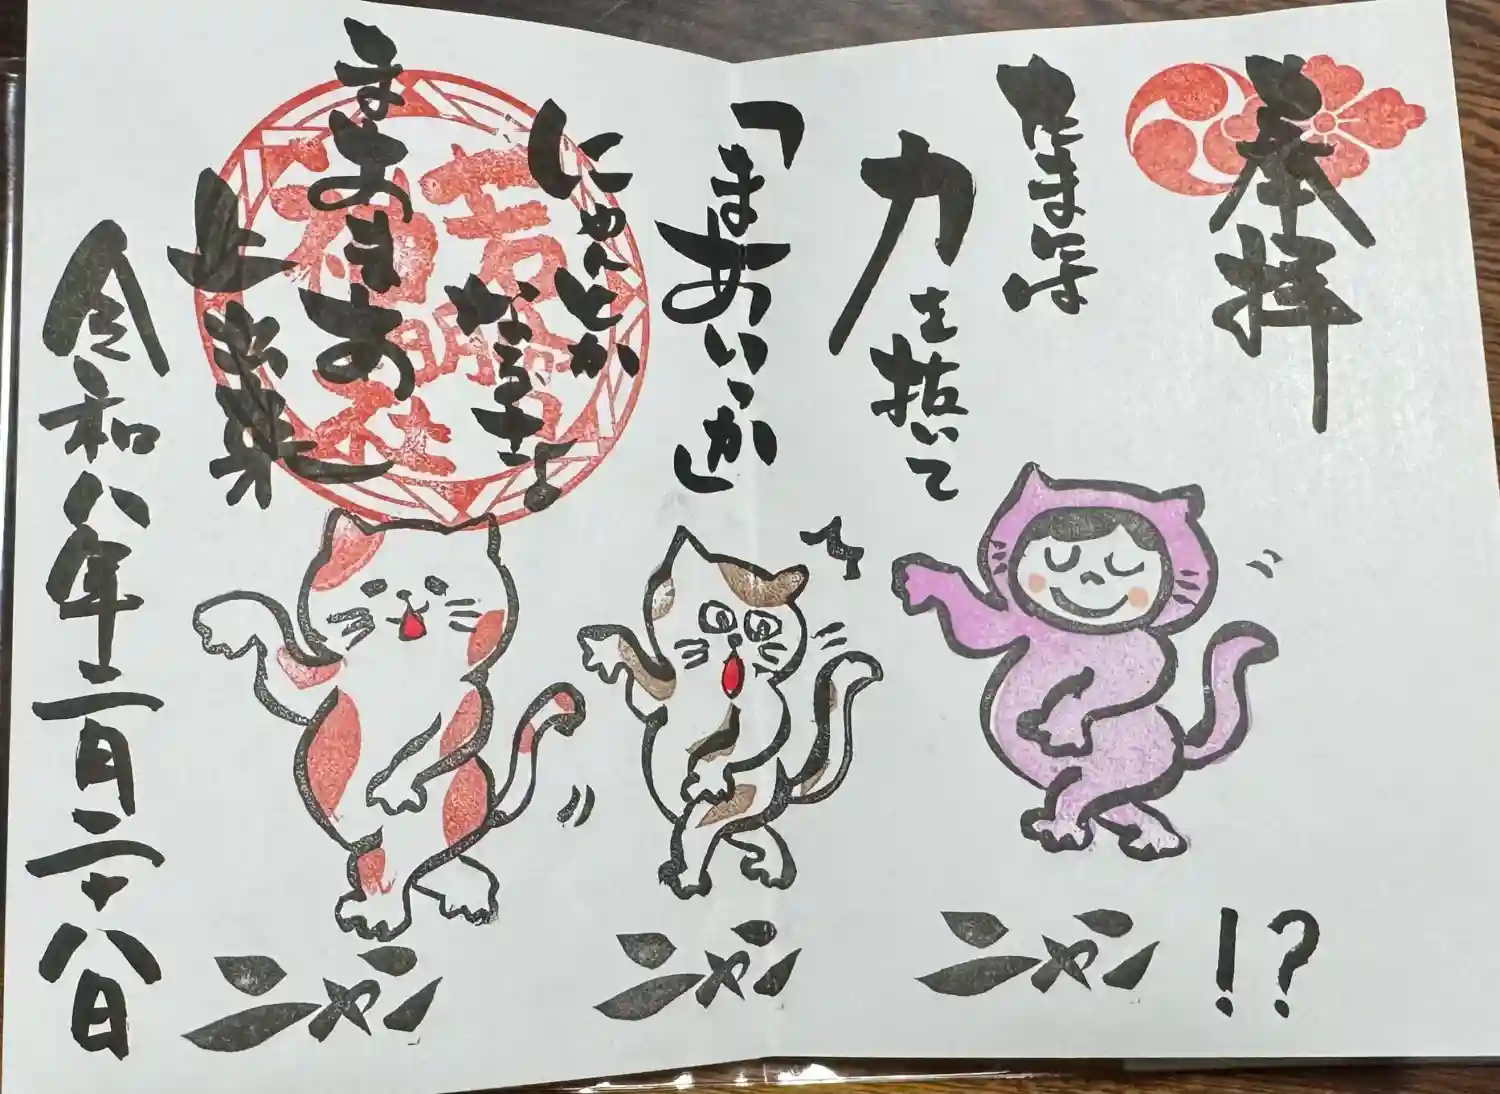 奉拝
たまには
力を抜いて
「まあいっか」
にゃんとか
なるさ♪
まあまあ
上出来
若宮
神明社
令和八年二月二十八日
ニャン
ニャン
ニャン!?